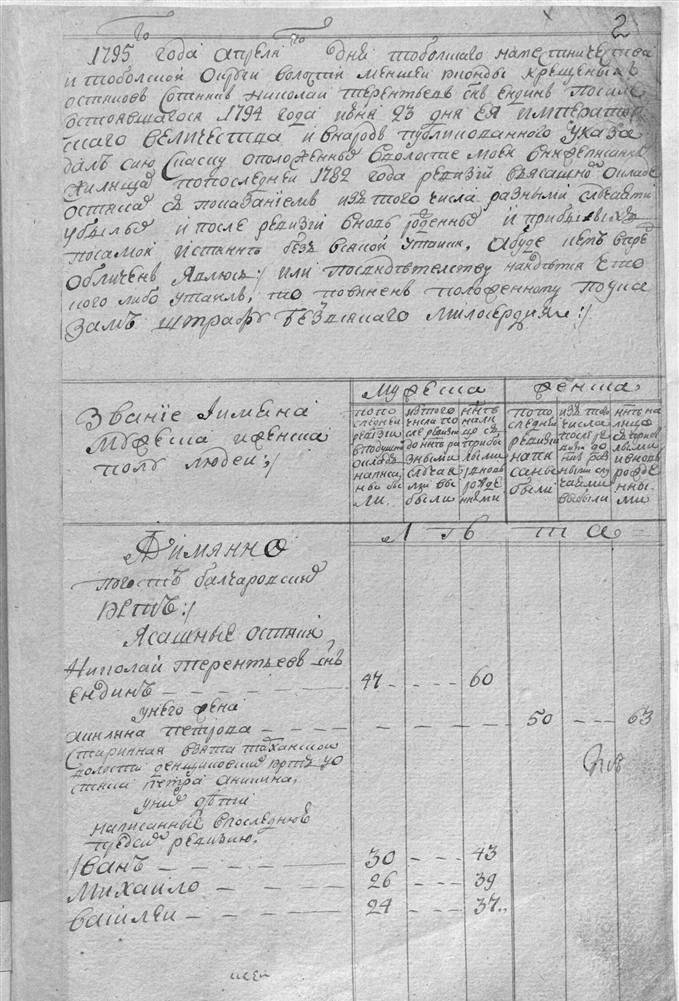 2
1795 года апреля дня тобольскаго наместничества
и тоболской округи волости меншей конды крещеныхъ
остяковъ сотникъ николай терентьевъ снъ ендинъ посиле
состоявшагося 1794 года июня 23 дня ЕЯ ИМПЕРАТОР
скаго ВЕЛИЧЕСТВА и внародъ публикованного указа
далъ сию скаску
жилищах попоследней 1782 года ревизии
остяках съ показаниемъ изъ того числа разными случаями
убылыхъ и после ревизии вновь рожденных и прибылыхъ
посамой истинне безъ всякой утайки, абуде
обличенъ явлюся:/ или посвидетелству найдется что
кого либо утаилъ, то повиненъ положенному поука
замъ штрафу безъ всякаго милосердия:/
Звание имена
мужеска иженска
полу людей:/
мужеска
женска
попо
следней
ревизии
вподушно
окладъ
написа,
но бы
ли.
изтого
числа по
сле ревизи
до нтъ ра
зными
случая
ми вы
были
нтъ
нали
цо съ
прибы
лыми
ивновь
рожде
нными
попо
следней
ревизии
напи
саны
были
изъ того
числа
после ре
визи до
нтъ раз
ными слу
чаями
выбыли
нтъ на
лицо
съ прибы
лыми
ивновь
рожде
нны,
ми
Л тъ та
Аимянно
погостъ балчаровския
юртъ:/
Ясашные остяки
Николай терентьевъ снъ
ендинъ 47 60
унего жена
акилина петрова 50 63
Старинная взята
волости юртъ уо
стяка петра аникина,
унихъ дети
написанные впоследнюю
предъ сию ревизию,
Иванъ 30 43
Михайло 26 39
василей 24 37..